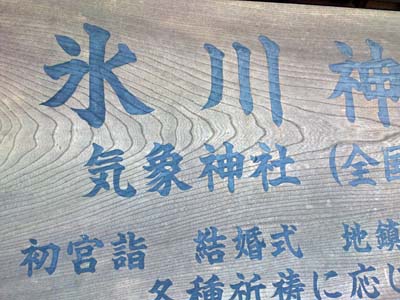 氷川神
気象神社(全国
初宮詣 結婚式 地鎮
各種祈祷に応じ